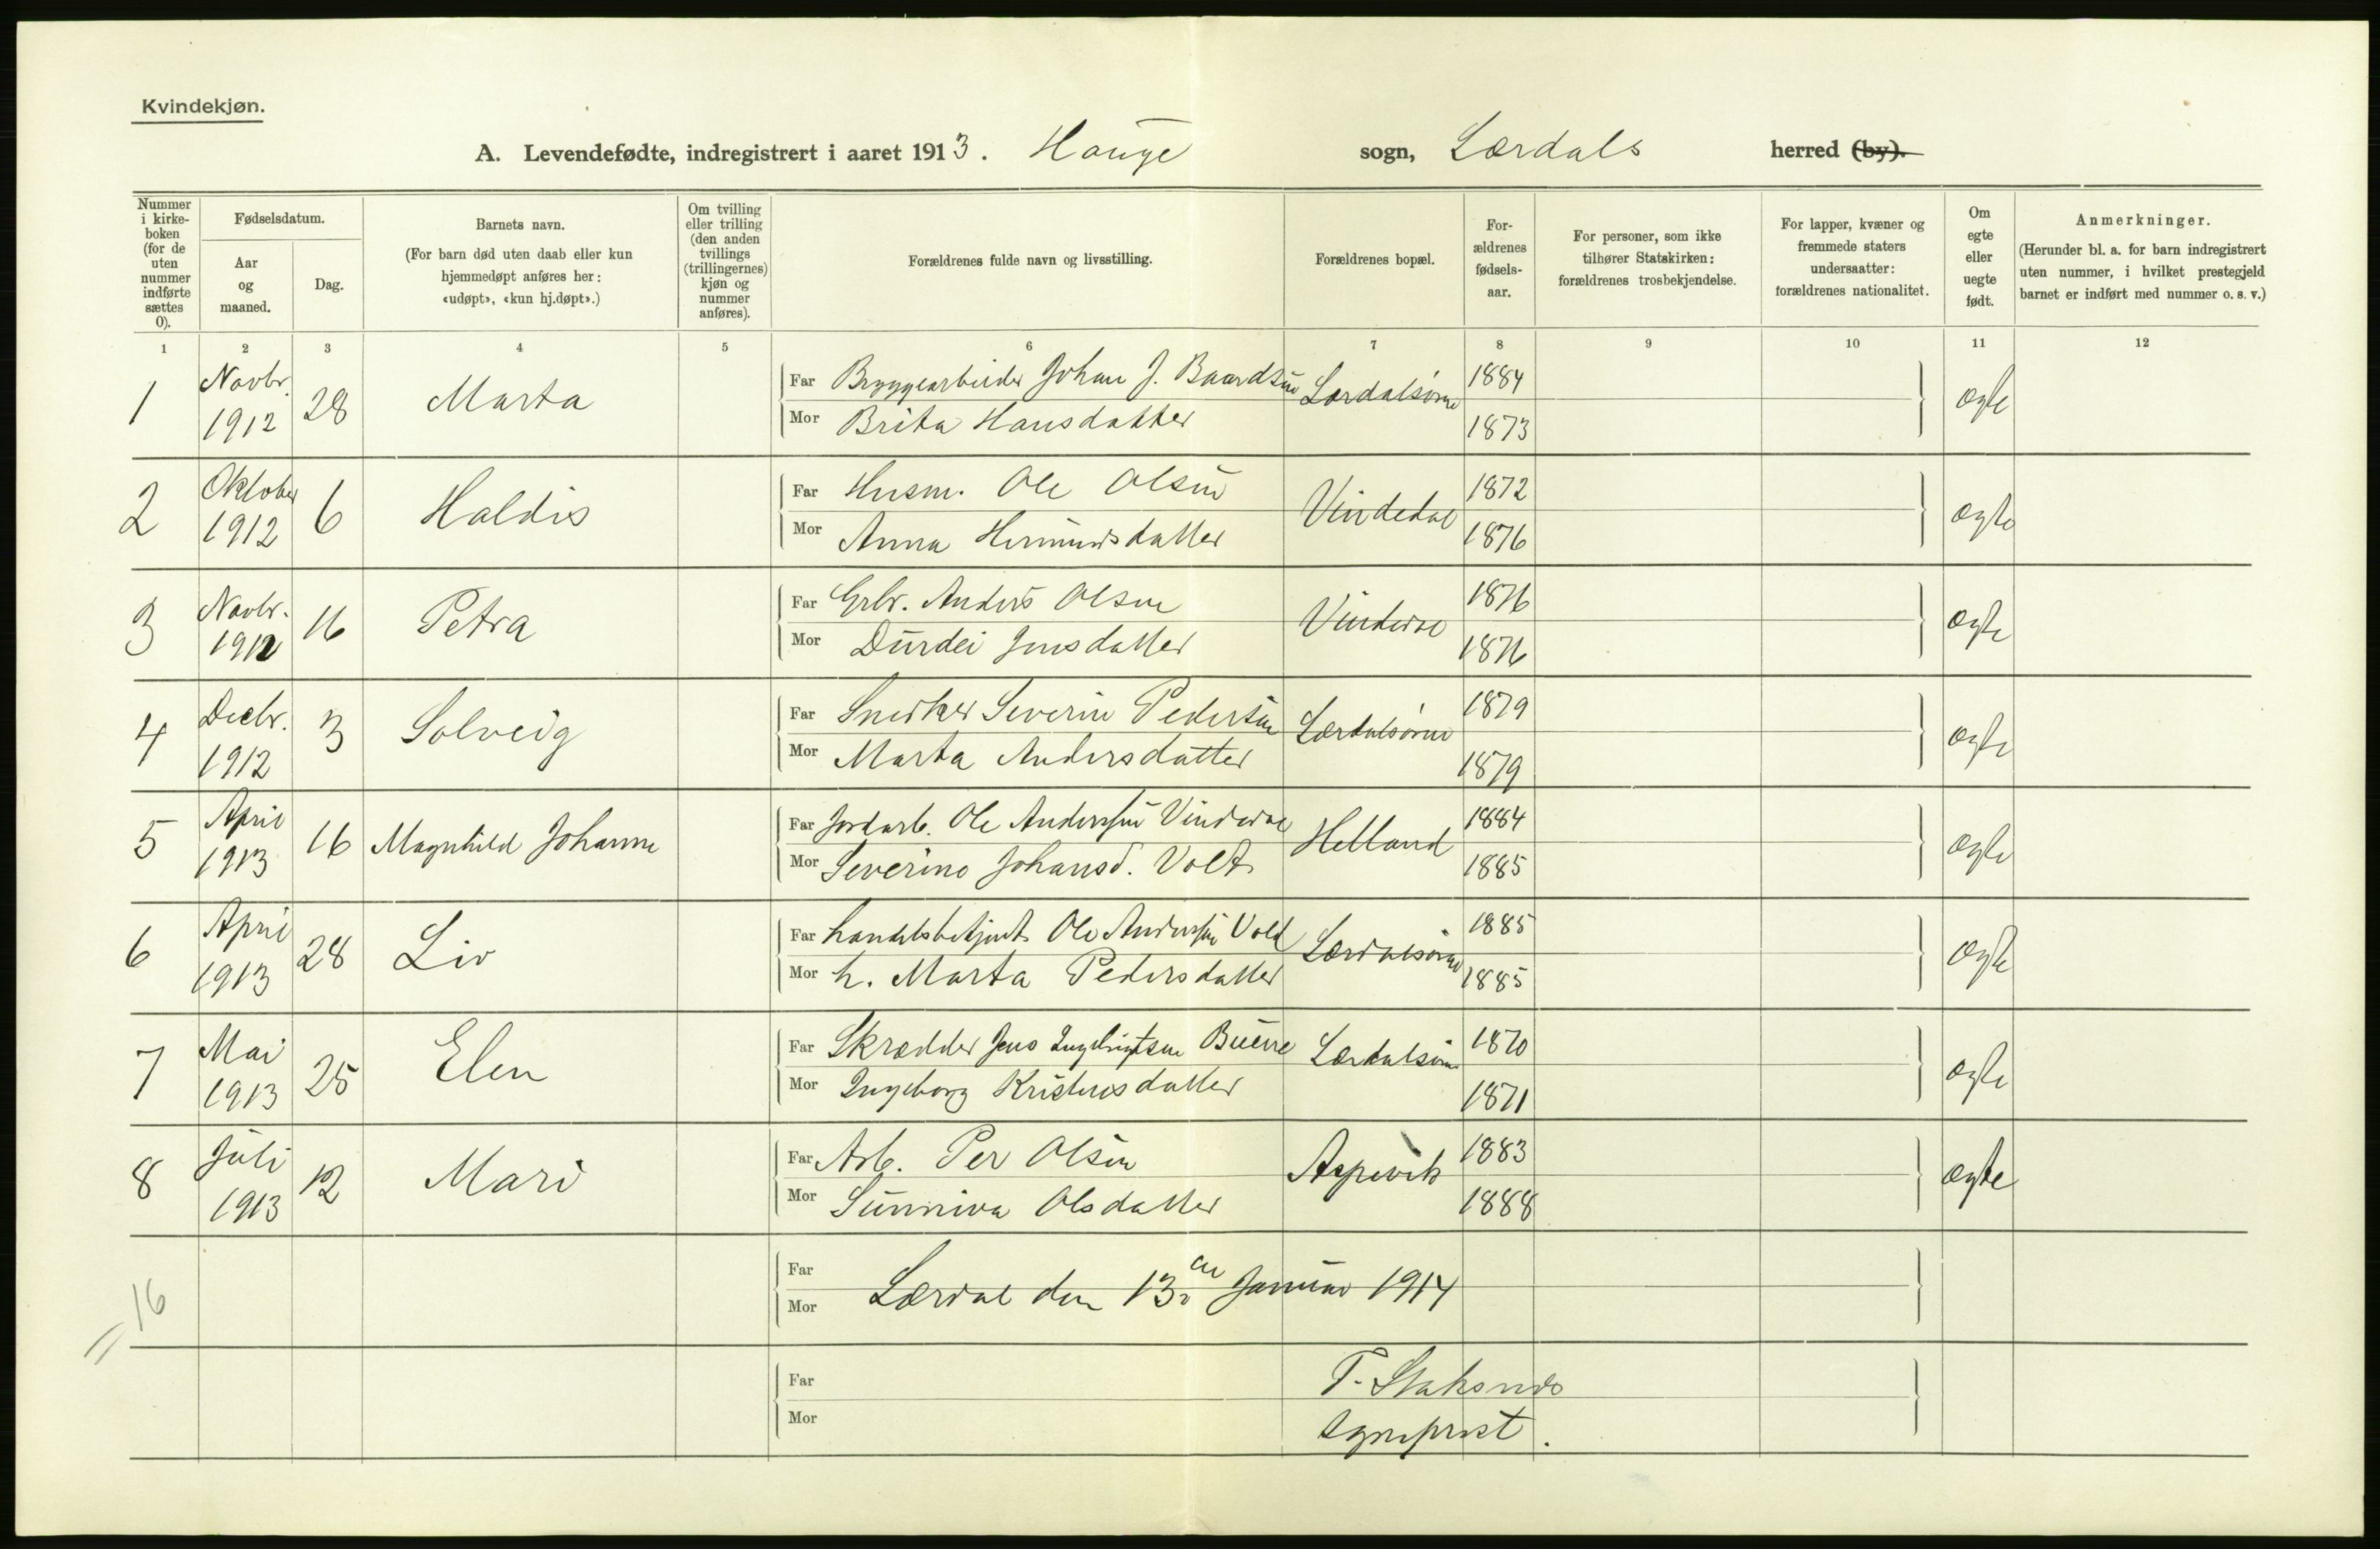 Kvindekjøn.
A. Levendefødte, indregistrert i aaret 1913. Hauge sogn, Lærdals herred (by).
Nummer i kirke-boken (for de uten nummer indførte sættes 0).
Fødselsdatum.
Aar og maaned.
Dag.
Barnets navn.
(For barn død uten daab eller kun hjemmedøpt anføres her: «udøpt», «kun hj.døpt».)
Om tvilling eller trilling (den anden tvillings (trillingernes) kjøn og nummer anføres).
Forældrenes fulde navn og livsstilling.
Forældrenes bopæl.
For-ældrenes fødsels-aar.
For personer, som ikke tilhører Statskirken: forældrenes trosbekjendelse.
For lapper, kvæner og fremmede staters undersaatter: forældrenes nationalitet.
Om egte eller uegte født.
Anmerkninger.
(Herunder bl. a. for barn indregistrert uten nummer, i hvilket prestegjeld barnet er indført med nummer o. s. v.)
1 2 3 4 5 6 7 8 9 10 11 12
1 Novbr. 1912 28 Marta Far Bryggearbeider Johan J. Baardsen Lærdalsøren 1884 ægte
Mor Brita Hansdatter 1873
2 Oktober 1912 6 Haldis Far Husm. Ole Olsen Vindedal 1872 ægte
Mor Anna Hermundsdatter 1876
3 Novbr. 1912 16 Petra Far Grbr. Anders Olsen 1876 ægte
Mor Durdei Jensdatter 1876
4 Decbr. 1912 3 Solveig Far Snedker Severin Pedersen Lærdalsøren 1879 ægte
Mor Marta Andersdatter 1879
5 April 1913 16 Magnhild Johanne Far Jordarb. Ole Anderssen Helland 1884 ægte
Mor Severine Johansd. Vold 1885
6 April 1913 28 Liv Far Handelsbetjent Ole Anderssen Vold Lærdalsøren 1885 ægte
Mor h. Marta Pedersdatter 1885
7 Mai 1913 25 Elen Far Skrædder Jens Ingebrigtsen Lærdalsøren 1870 ægte
Mor Ingeborg Kristensdatter 1871
8 Juli 1913 12 Mari Far Arb. Per Olsen Aspevik 1883 ægte
Mor Sunniva Olsdatter 1888
16
Far
Mor
Lærdal den 13de Januar 1914
Far
Mor
sogneprest.